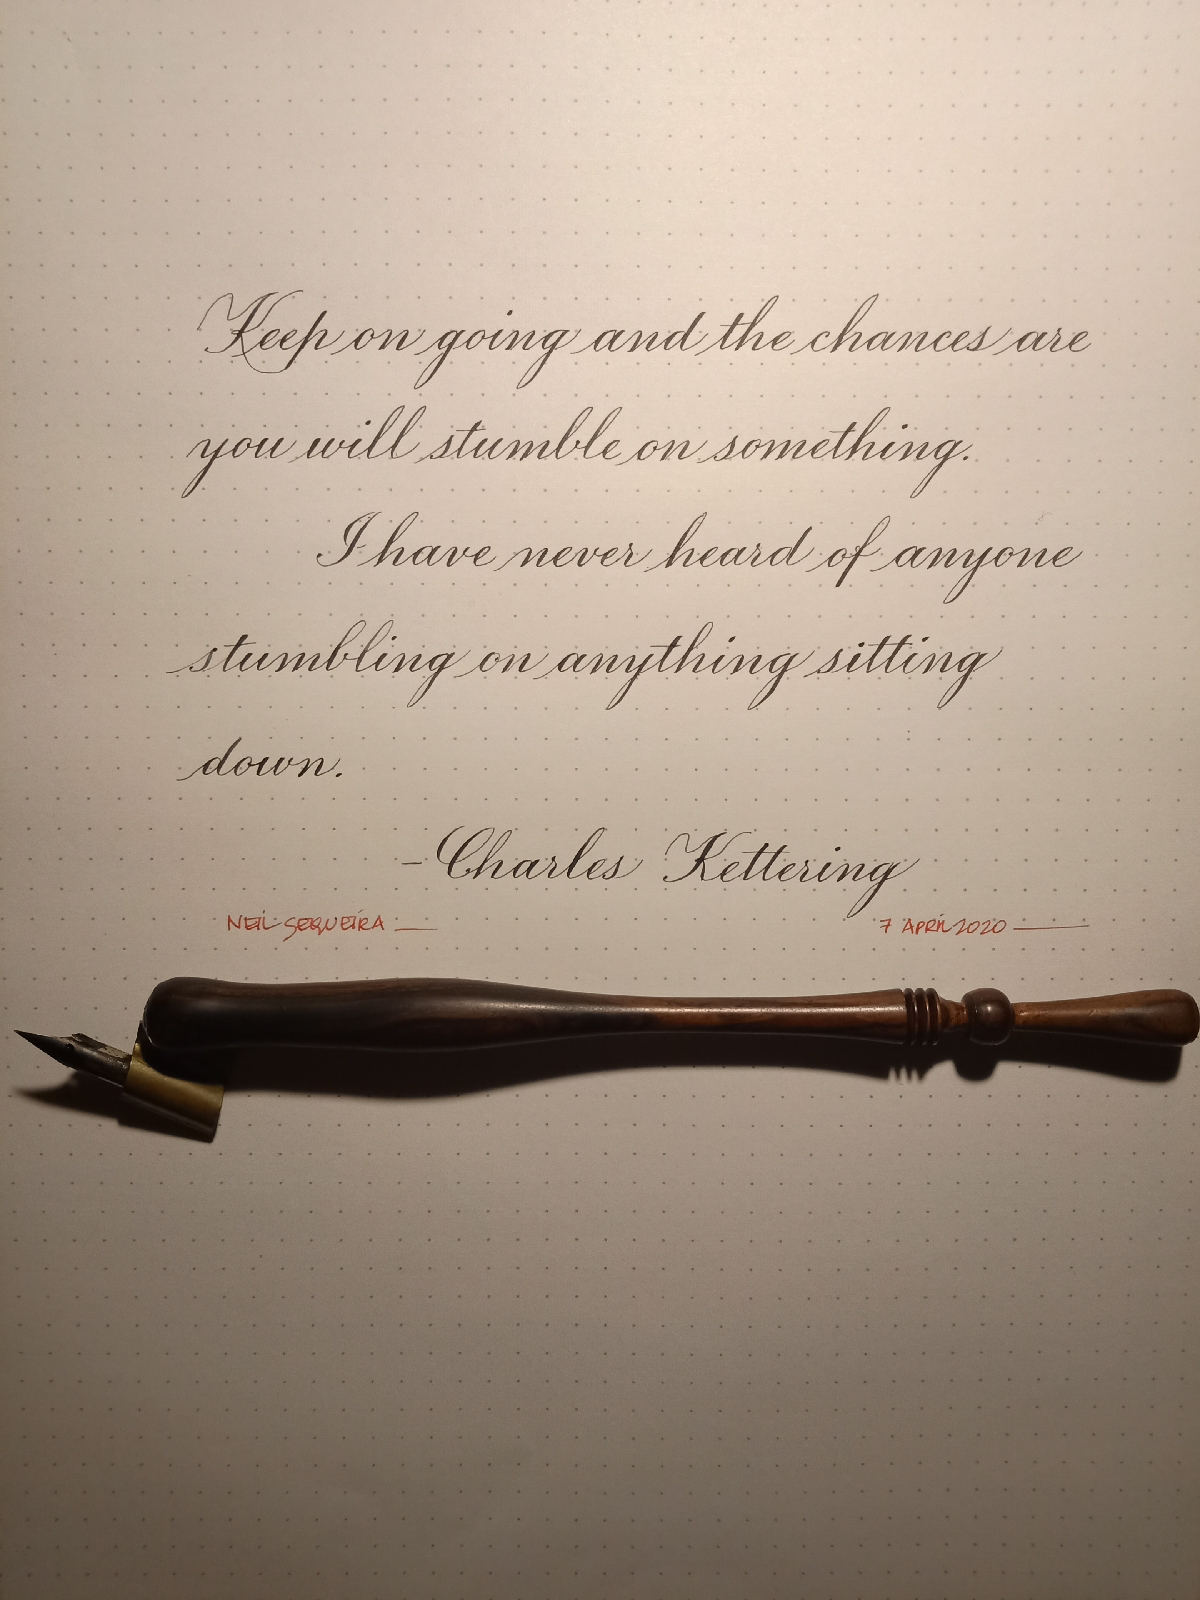 Keep on going and the chances are
you will stumble on something.
I have never heard of anyone
stumbling on anything sitting
down.
-Charles Kettering
NEIL SEQUEIRA
7 APRIL 2020